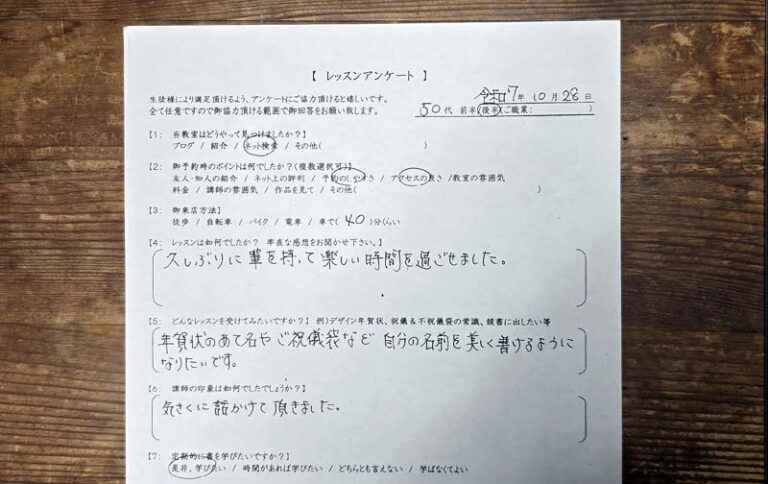 【 レッスンアンケート 】
生徒様により満足頂けるよう、アンケートにご協力頂けると嬉しいです。
令和7年 10月 28日
全て任意ですので御協力頂ける範囲で御回答をお願い致します。
50代 前半 後半 (ご職業: )
【1: 当教室はどうやって見つけましたか?】
ブログ / 紹介 / ネット検索 / その他( )
【2: 御予約時のポイントは何でしたか?(複数選択可)】
友人・知人の紹介 / ネット上の評判 / 予約のしやすさ / アクセスの良さ /教室の雰囲気
料金 / 講師の雰囲気 / 作品を見て / その他( )
【3: 御来店方法】
徒歩 / 自転車 / バイク / 電車 / 車で( 40 )分くらい
【4: レッスンは如何でしたか? 率直な感想をお聞かせ下さい。】
久しぶりに筆を持って楽しい時間を過ごせました。
【5: どんなレッスンを受けてみたいですか? 例)デザイン年賀状、祝儀&不祝儀袋の常識、競書に出したい等
年賀状のあて名やご祝儀袋など 自分の名前を美しく書けるように
なりたいです。
【6: 講師の印象は如何でしたでしょうか?】
気さくに話かけて頂きました。
【7: 定期的に書を学びたいですか?】
是非、学びたい / 時間があれば学びたい / どちらとも言えない / 学ばなくてよい